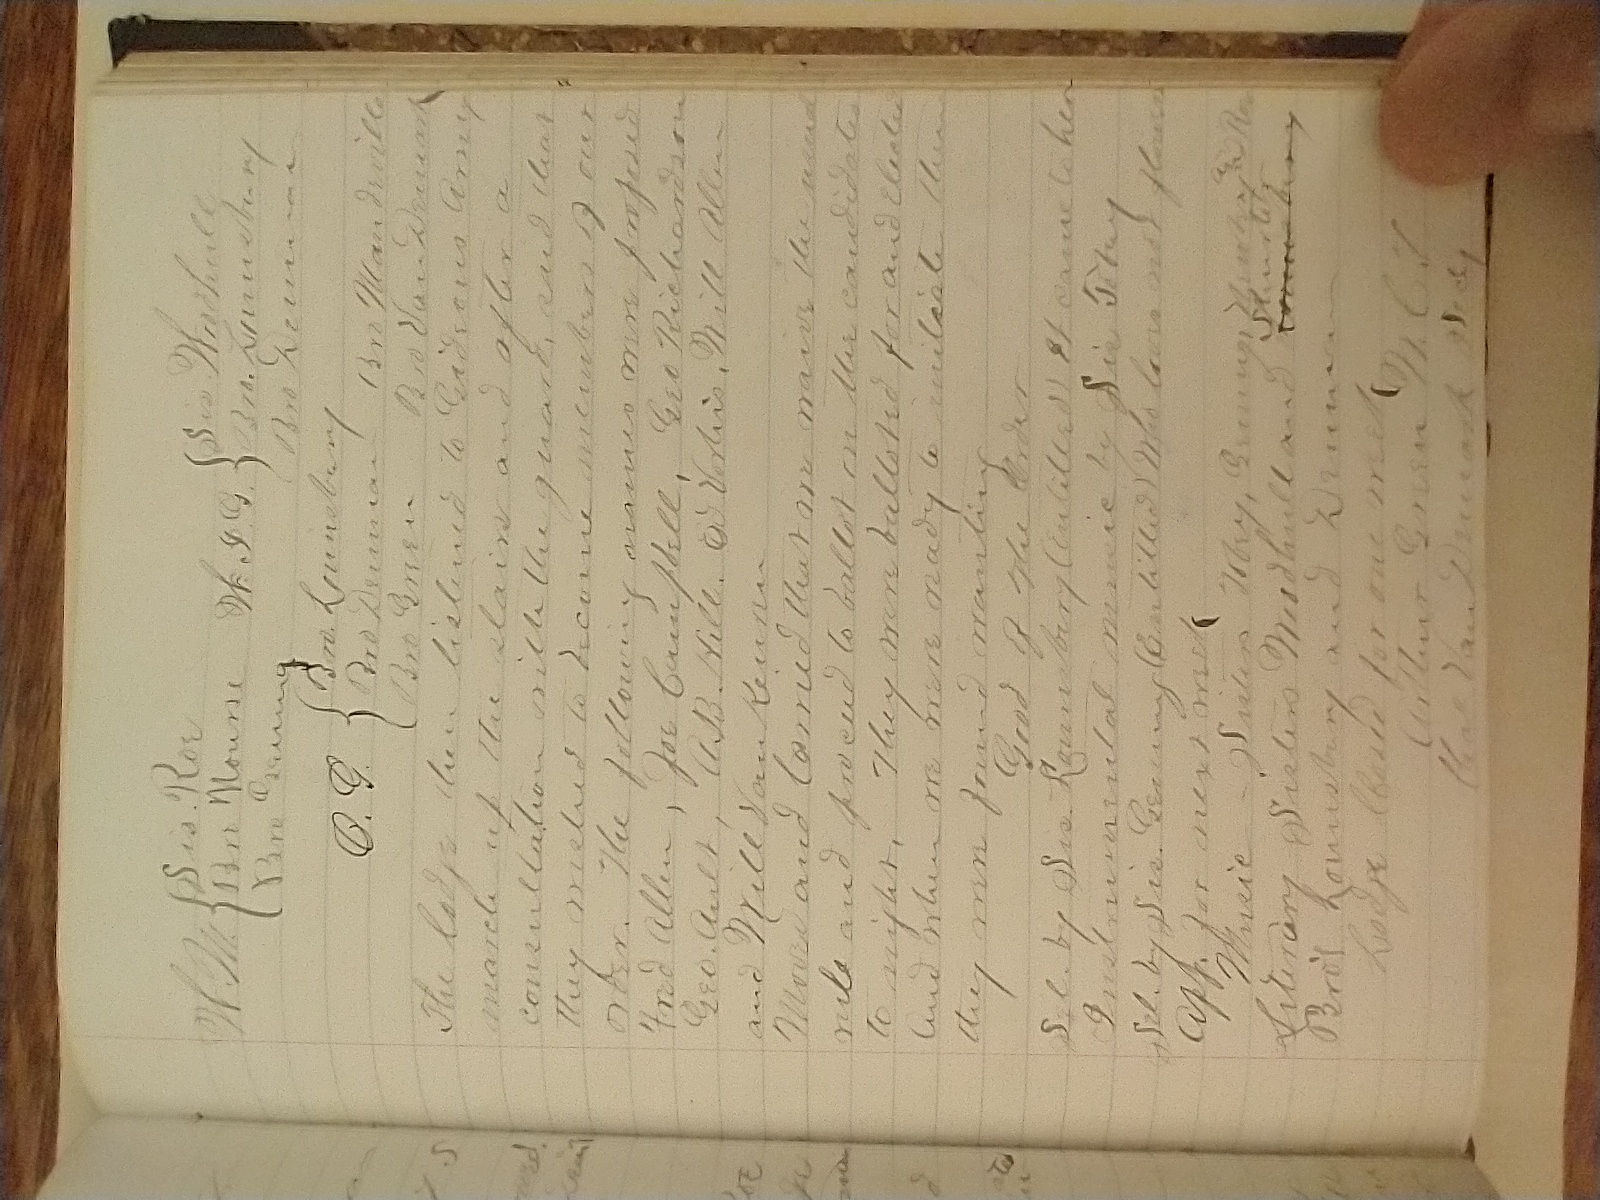 W.M. { Sis. Roe
Bro Nourse
Bro Genung
W. I. G. { Sis Woodhull
Bro. Lounsbury
Bro Denman
O. G. { Bro. Lounsbury
Bro Denman Bro Mandeville
Bro Green Bro Van Demark
The lodge then listened to Gideons Army
march up the stairs and after a
consultation with the guard, said that
they wished to become members of our
order. The following names were proposed
Fred Allen, Joe Campbell, Geo Richardson
Geo. Ault, A.B. Hill. Ed Vorhis, Will Allen
and Will Van Keuren
Moved and Carried that we waive the usual
rule and proceed to ballot on the candidates
to night. They were balloted for and elected
And when we were ready to initiate them
they were found wanting
Good of the Order
Sel. by Sis. Lounsbery (Entitled) It came to her
Instrumental music by Sis Tobey
Sel. by Sis. Genung (Entitled) Who loves not flowers
App. for next week
Music - Sisters Tobey, Genung, and Roe
Literary Sisters Woodhull and
Bro's Lounsbury and Denman
Lodge Closed for one week
Arthur Green W. C T
Chas Van Demark Secy